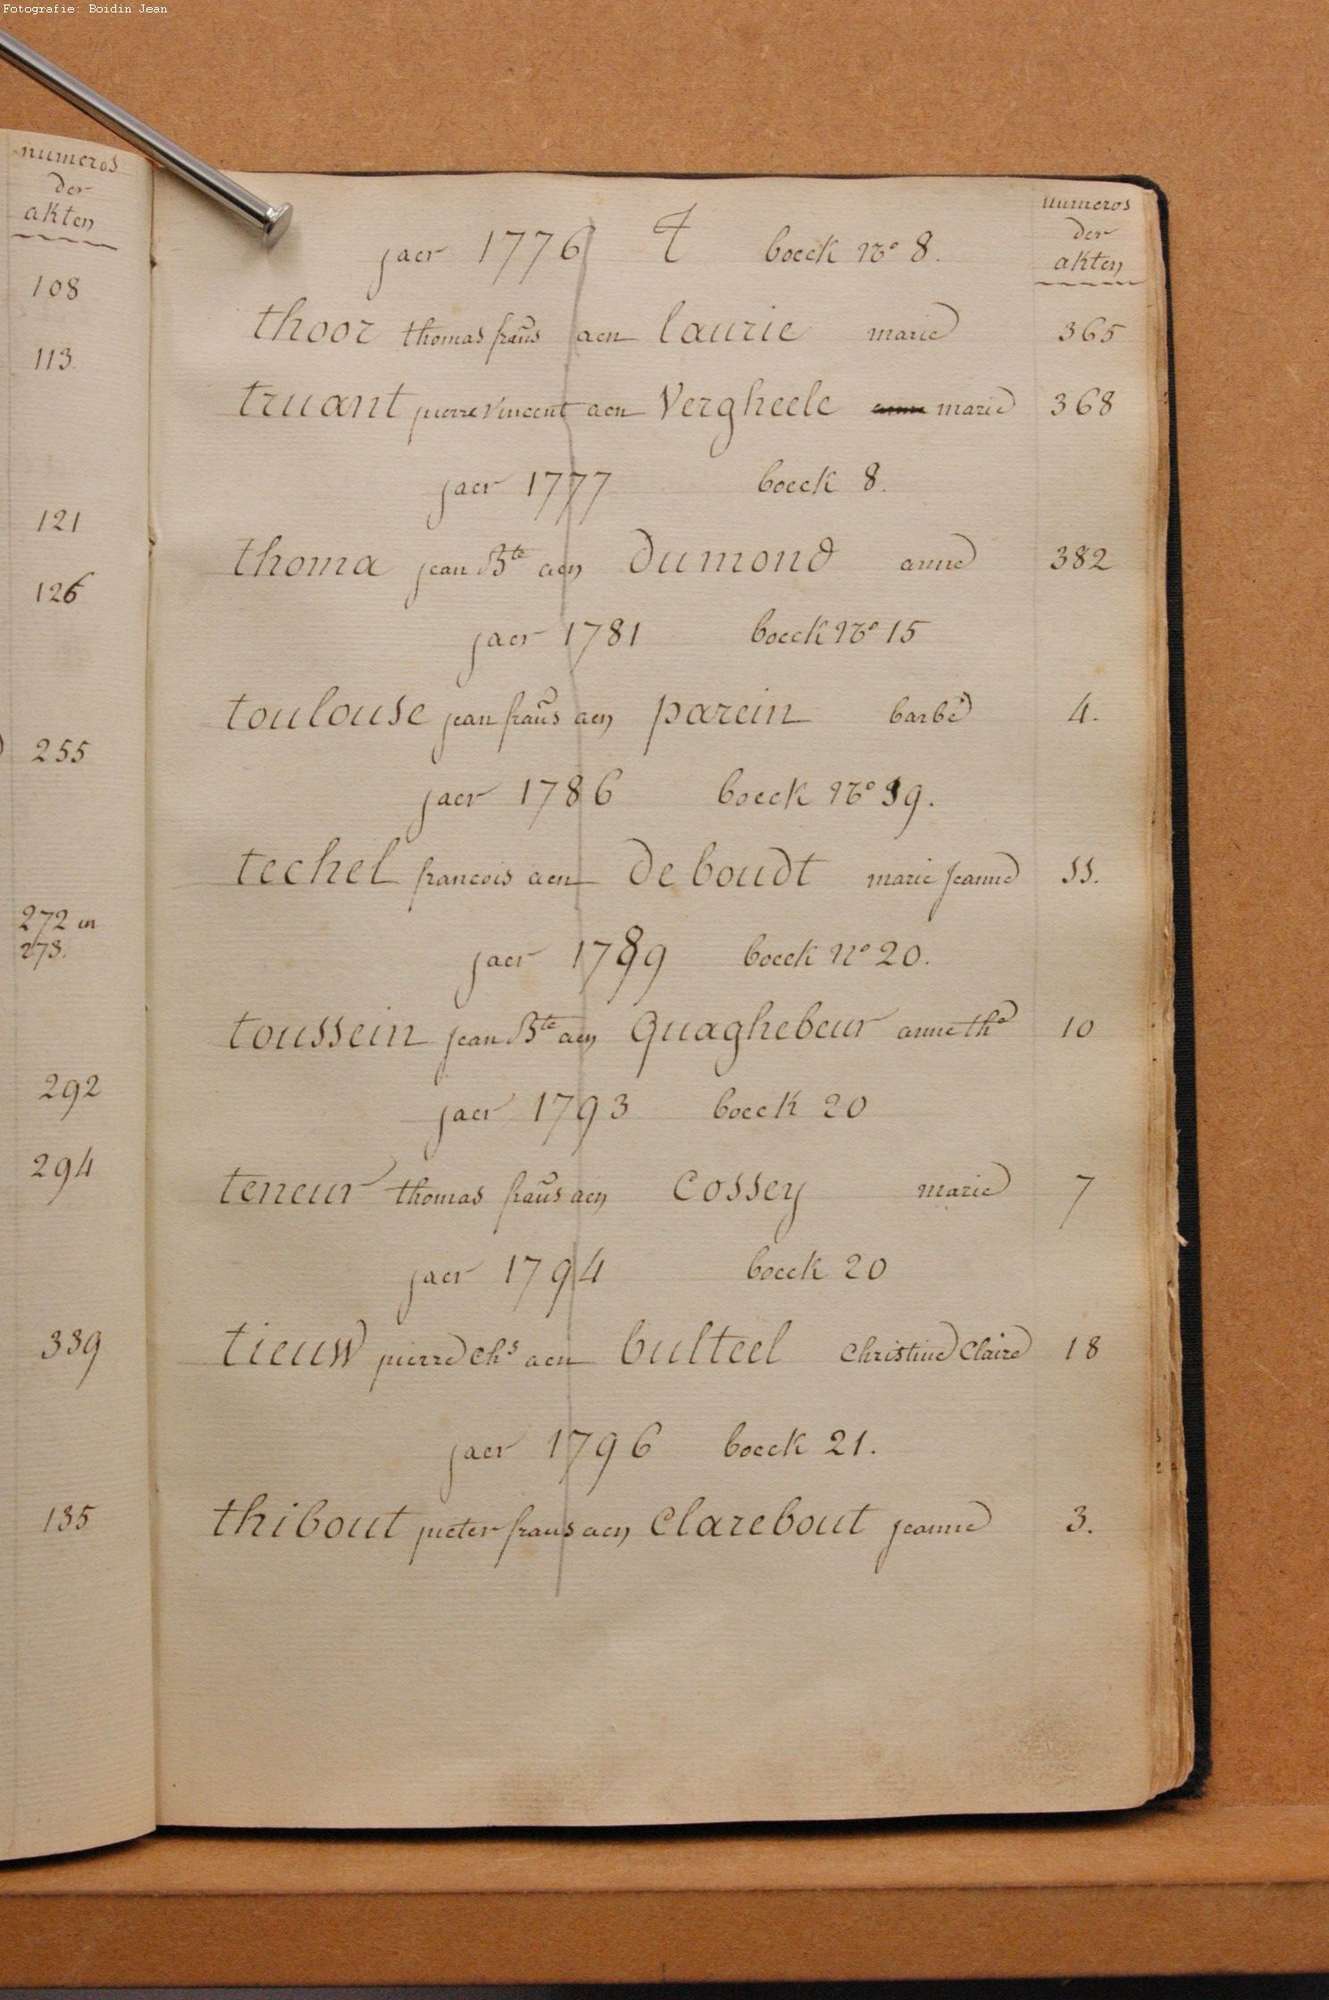 Fotografie: Boidin Jean
numeros
der
akten
108
113.
121
126
255
272 en
273.
292
294
339
135
numeros
der
akten
jaer 1776 T boeck No 8.
thoor thomas fraņs aen laurie marie 365
truant pierre vincent aen Vergheele anne marie 368
jaer 1777 boeck 8.
thoma jean Bte aen dumond anne 382
jaer 1781 boeck No 15
toulouse jean fraņs aen parein barbe 4.
jaer 1786 boeck No 19.
techel francois aen de boudt marie jeanne 55.
jaer 1789 boeck No 20.
toussein jean Bte aen Quaghebeur anne the 10
jaer 1793 boeck 20
teneur thomas fraņs aen Cossey marie 7
jaer 1794 boeck 20
tieuw pierre Chs aen bulteel Christine Claire 18
jaer 1796 boeck 21.
thibout pieter frans aen Clarebout jeanne 3.